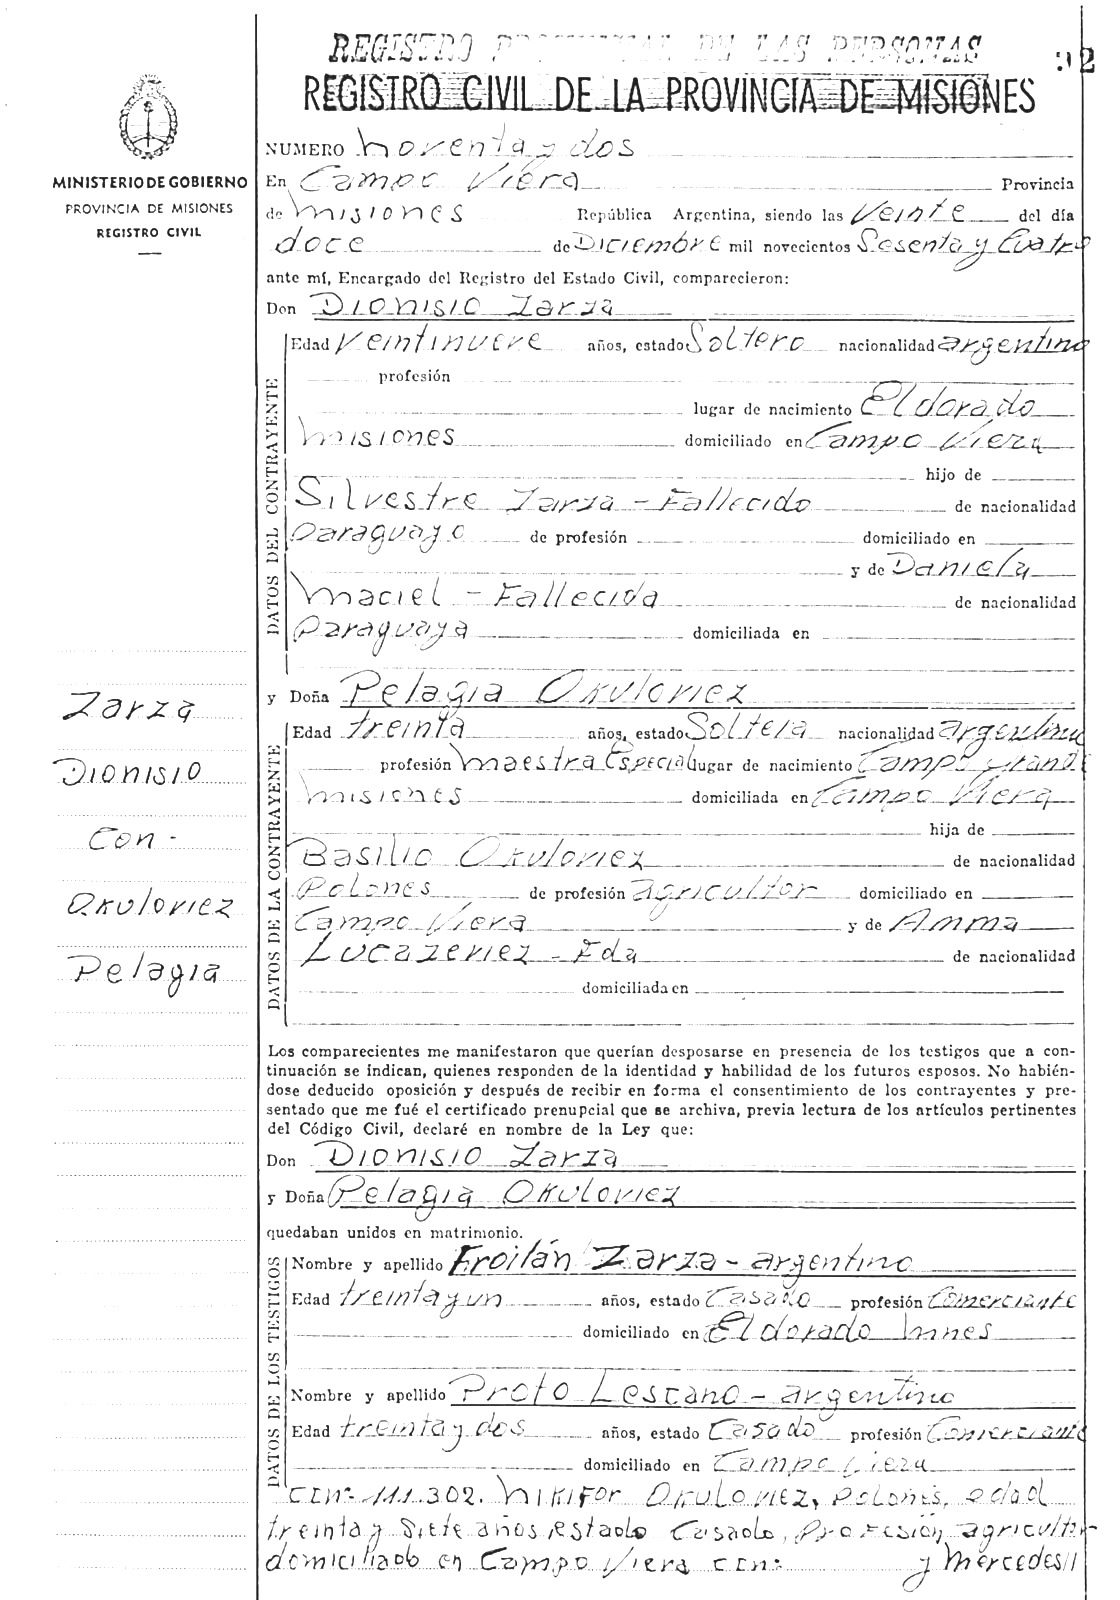 REGISTRO PROVINCIAL DE LAS PERSONAS
92
REGISTRO CIVIL DE LA PROVINCIA DE MISIONES
MINISTERIO DE GOBIERNO
PROVINCIA DE MISIONES
REGISTRO CIVIL
NUMERO noventa y dos
En Campo Viera Provincia
de Misiones República Argentina, siendo las veinte del día
doce de Diciembre mil novecientos Sesenta y Cuatro
ante mí, Encargado del Registro del Estado Civil, comparecieron:
Don Dionisio Zarza
DATOS DEL CONTRAYENTE
Edad veintinueve años, estado Soltero nacionalidad argentino
profesión
lugar de nacimiento Eldorado
Misiones domiciliado en Campo Viera
hijo de
Silvestre Zarza - Fallecido de nacionalidad
Paraguayo de profesión domiciliado en
y de Daniela
Maciel - Fallecida de nacionalidad
Paraguaya domiciliada en
y Doña Pelagia Okuloviez
DATOS DE LA CONTRAYENTE
Edad treinta años, estado Soltera nacionalidad argentina
profesión Maestra Especial lugar de nacimiento Campo Grande
Misiones domiciliada en Campo Viera
hija de
Basilio Okuloviez de nacionalidad
Polones de profesión agricultor domiciliado en
Campo Viera y de Amma
Lucazeviez - Fda de nacionalidad
domiciliada en
Zarza
Dionisio
Con -
Okuloviez
Pelagia
Los comparecientes me manifestaron que querían desposarse en presencia de los testigos que a con-
tinuación se indican, quienes responden de la identidad y habilidad de los futuros esposos. No habién-
dose deducido oposición y después de recibir en forma el consentimiento de los contrayentes y pre-
sentado que me fué el certificado prenupcial que se archiva, previa lectura de los artículos pertinentes
del Código Civil, declaré en nombre de la Ley que:
Don Dionisio Zarza
y Doña Pelagia Okuloviez
quedaban unidos en matrimonio.
DATOS DE LOS TESTIGOS
Nombre y apellido Froilán Zarza - argentino
Edad treinta y un años, estado Casado profesión Comerciante
domiciliado en Eldorado Mnes
Nombre y apellido Proto Lescano - argentino
Edad treinta y dos años, estado Casado profesión Comerciante
domiciliado en Campo Viera
CIN: 111.302. Nikifor Okuloviez, Polones, edad
treinta y Siete años, estado Casado, Profesión, agricultor
domiciliado en Campo Viera CIN: y Mercedes//